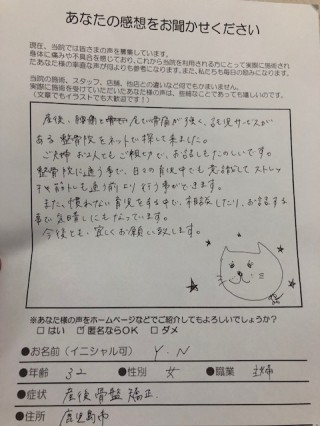 あなたの感想をお聞かせください
現在、当院では皆さまの声を募集しています。
身体に痛みや不具合を感じており、これから当院を利用される方にとって実際に施術され
たあなた様の率直な声が何よりも参考になります。また、私たちも毎日の励みになります。
当院の施術、スタッフ、店舗、他店との違いなど何でもかまいません。
実際に施術を受けていただいたあなた様の声は、些細なことであっても嬉しいのです。
(文章でもイラストでも大歓迎です!)
産後、腰痛と尾てい骨痛が強く、託児サービスが
ある整骨院をネットで探して来ました。
ご夫婦お2人でもご親切で、お話しもたのしいです。
整骨院に通う事で、日々の育児中でも意識してストレッ
チや筋トレも通う前より行う事ができます。
また、慣れない育児をする中で、相談をしたり、お話する
事で気晴しにもなっています。
今後とも、宜しくお願い致します。
※あなた様の声をホームページなどでご紹介してもよろしいでしょうか?
□ はい ☑ 匿名ならOK □ ダメ
●お名前(イニシャル可) Y.N
●年齢 32 ●性別 女 ●職業 主婦
●症状 産後骨盤矯正.
●住所 鹿児島市